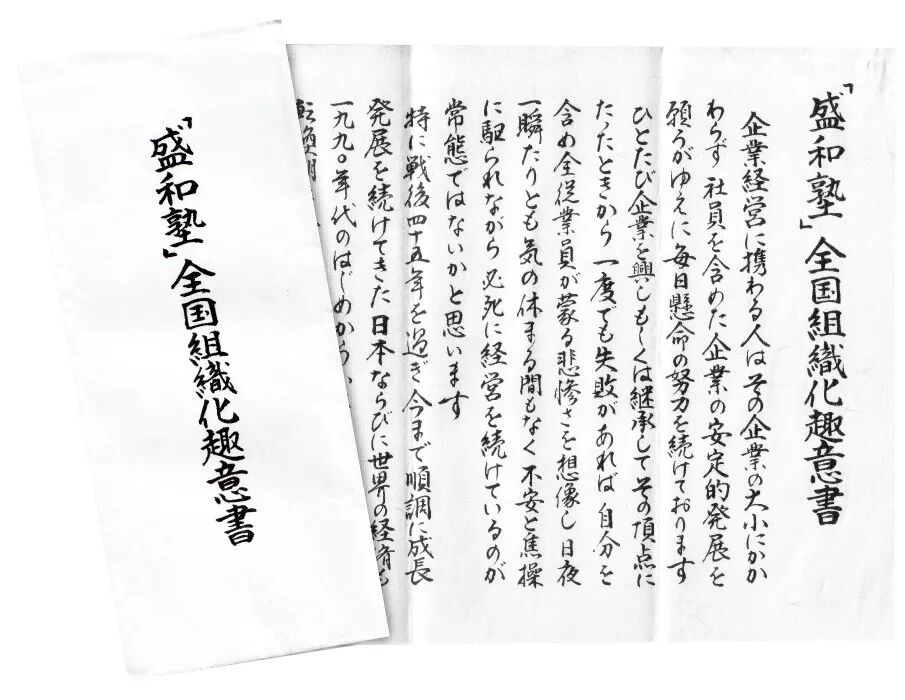 「盛和塾」全国組織化趣意書
企業経営に携わる人はその企業の大小にかか
わらず 社員を含めた企業の安定的発展を
願うがゆえに毎日懸命の努力を続けております
ひとたび企業を興しもしくは継承してその頂点に
たったときから 一度でも失敗があれば 自分を
含め全従業員が蒙る悲惨さを想像し 日夜
一瞬たりとも気の休まる間もなく 不安と焦操
に駆られながら 必死に経営を続けているのが
常態ではないかと思います
特に戦後四十五年を過ぎ 今まで順調に成長
発展を続けてきた日本ならびに世界の経済も
一九九〇年代のはじめから
「盛和塾」全国組織化趣意書